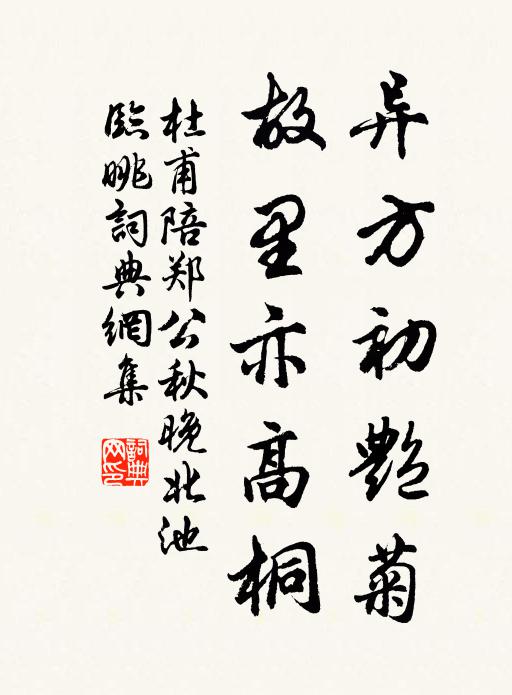 异方初艳菊
故里亦高桐
杜甫陪郑公秋晚北池
临眺詞典網集
詞典
网印